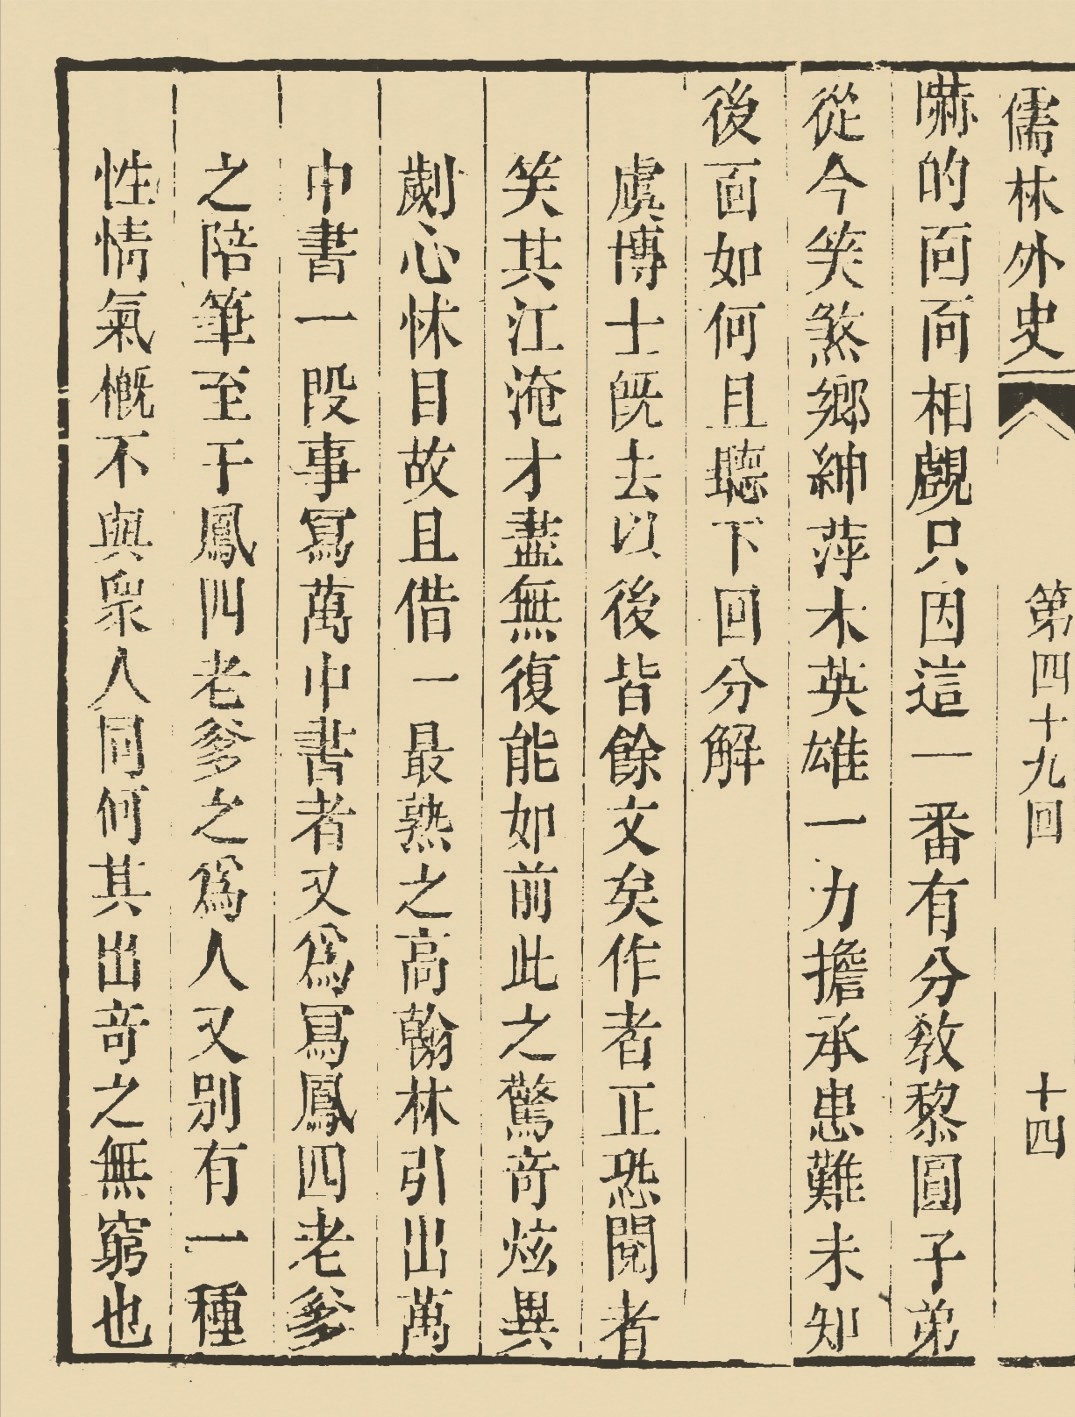 儒林外史
第四十九回
十四
嚇的面面相覷只因這一番有分教黎園子弟
從今笑煞鄉紳萍木英雄一力擔承患難未知
後面如何且聽下回分解
虞博士既去以後皆餘文矣作者正恐閱者
笑其江淹才盡無復能如前此之驚奇炫異
劌心怵目故且借一最熟之高翰林引出萬
中書一段事寫萬中書者又爲寫鳳四老爹
之陪筆至于鳳四老爹之爲人又別有一種
性情氣概不與衆人同何其出奇之無窮也